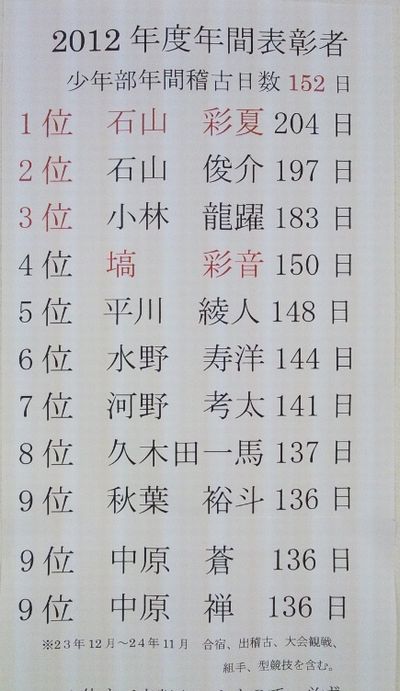 2012 年度年間表彰者
少年部年間稽古日数 152 日
1 位 石山 彩夏 204 日
2 位 石山 俊介 197 日
3 位 小林 龍躍 183 日
4 位 塙 彩音 150 日
5 位 平川 綾人 148 日
6 位 水野 寿洋 144 日
7 位 河野 考太 141 日
8 位 久木田一馬 137 日
9 位 秋葉 裕斗 136 日
9 位 中原 蒼 136 日
9 位 中原 禅 136 日
※23年12月～24年11月 合宿、出稽古、大会観戦、
組手、型競技を含む。